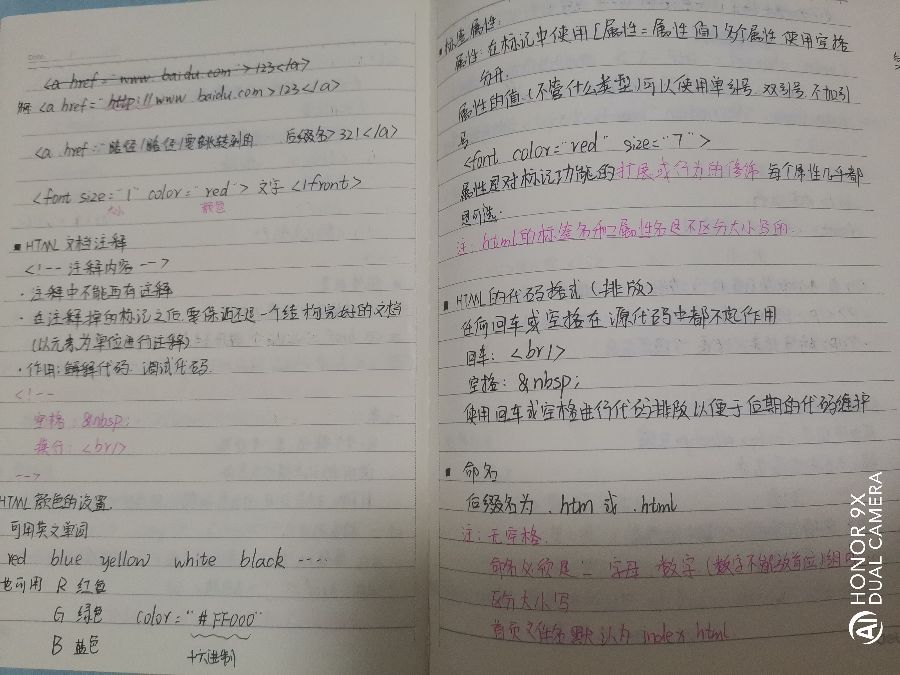 <a href="www.baidu.com">123</a>
解 <a href="http://www.baidu.com>123</a>
<a href="路径/路径/要跳转到的 后缀名>321</a>
<font size="1" color="red"> 文字 </front>
大小 颜色
▪ HTML 文档注释
<!-- 注释内容 -->
· 注释中不能再有注释
· 在注释掉的标记之后,要保洒还是一个结构完好的文档
(以元素为单位进行注释)
· 作用:解释代码. 调试代码.
<!--
空格: &nbsp;
换行: <br/>
-->
HTML 颜色的设置.
可用英文单词
red blue yellow white black ----
也可用 R 红色
G 绿色 color="#FF000"
B 蓝色
十六进制
▪ 标签属性:
属性:在标记中使用[属性=属性值]多个属性使用空格
分开.
属性的值(不管什么类型)可以使用单引号.双引号.不加引
号
<font color="red" size="7">
属性是对标记功能的扩展或行为的修饰 每个属性几乎都
是可选.
注:html的标签名和属性名是不区分大小写的
▪ HTML的代码格式(排版)
任何回车或空格在源代码中都不起作用
回车: <br/>
空格: &nbsp;
使用回车或空格进行代码排版以便于后期的代码维护
▪ 命名
后缀名为 .htm 或 .html
注:无空格.
命名必须是: 字母 数字(数字不能放首位)
区分大小写
首页文件名默认为 index html
HONOR 9X
AI DUAL CAMERA